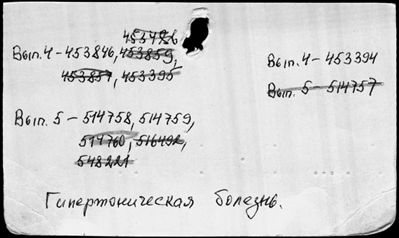 453426
Вып. 4 - 453846, 453859,
453857, 453395
Вып. 4 - 453394
Вып. 5 - 514757
Вып. 5 - 514758, 514759,
514760, 516492,
548221
Гипертоническая болезнь.